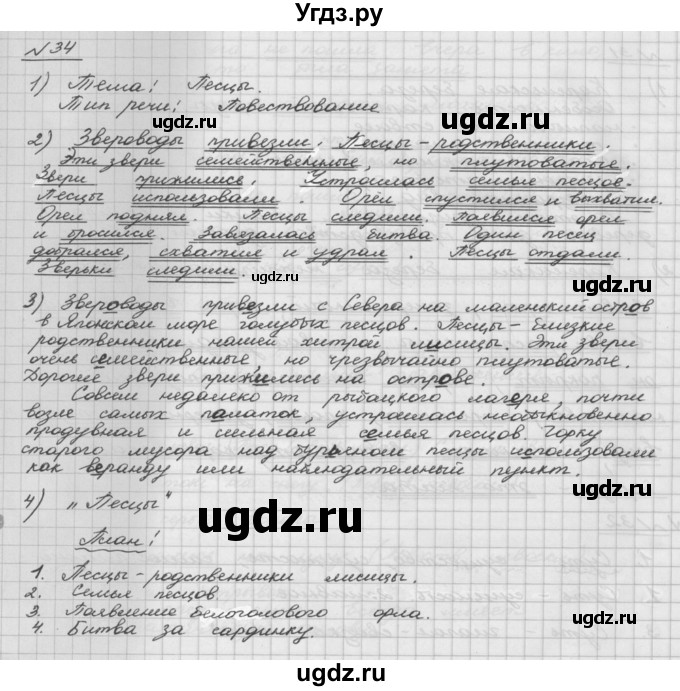 Угдз.ру
№34
1) Тема: Песцы.
Тип речи: Повествование
2) Звероводы привезли. Песцы - родственники.
Эти звери семейственные, но плутоватые.
Звери прижились. Устроилась семья песцов.
Песцы использовали. Орёл спустился и выхватил.
Орёл поднял. Песцы следили. Появился орел
и бросился. Завязалась битва. Один песец
добрался, схватил и удрал. Песцы отдали.
Зверьки следили.
ugdz.ru
ugdz.ru
3) Звероводы привезли с Севера на маленький остров
в Японском море голубых песцов. Песцы - близкие
родственники нашей хитрой лисицы. Эти звери
очень семейственные, но чрезвычайно плутоватые.
Дорогие звери прижились на острове.
Совсем недалеко от рыбацкого лагеря, почти
возле самых палаток, устроилась необыкновенно
продувная и сильная семья песцов. Горку
старого мусора над бурьяном песцы использовали
как веранду или наблюдательный пункт.
ugdz.ru
4) "Песцы"
ugdz.ru
План:
1. Песцы - родственники лисицы.
2. Семья песцов
3. Появление белоголового орла.
4. Битва за сардинку.
ugdz.ru
ugdz.ru
ugdz.ru